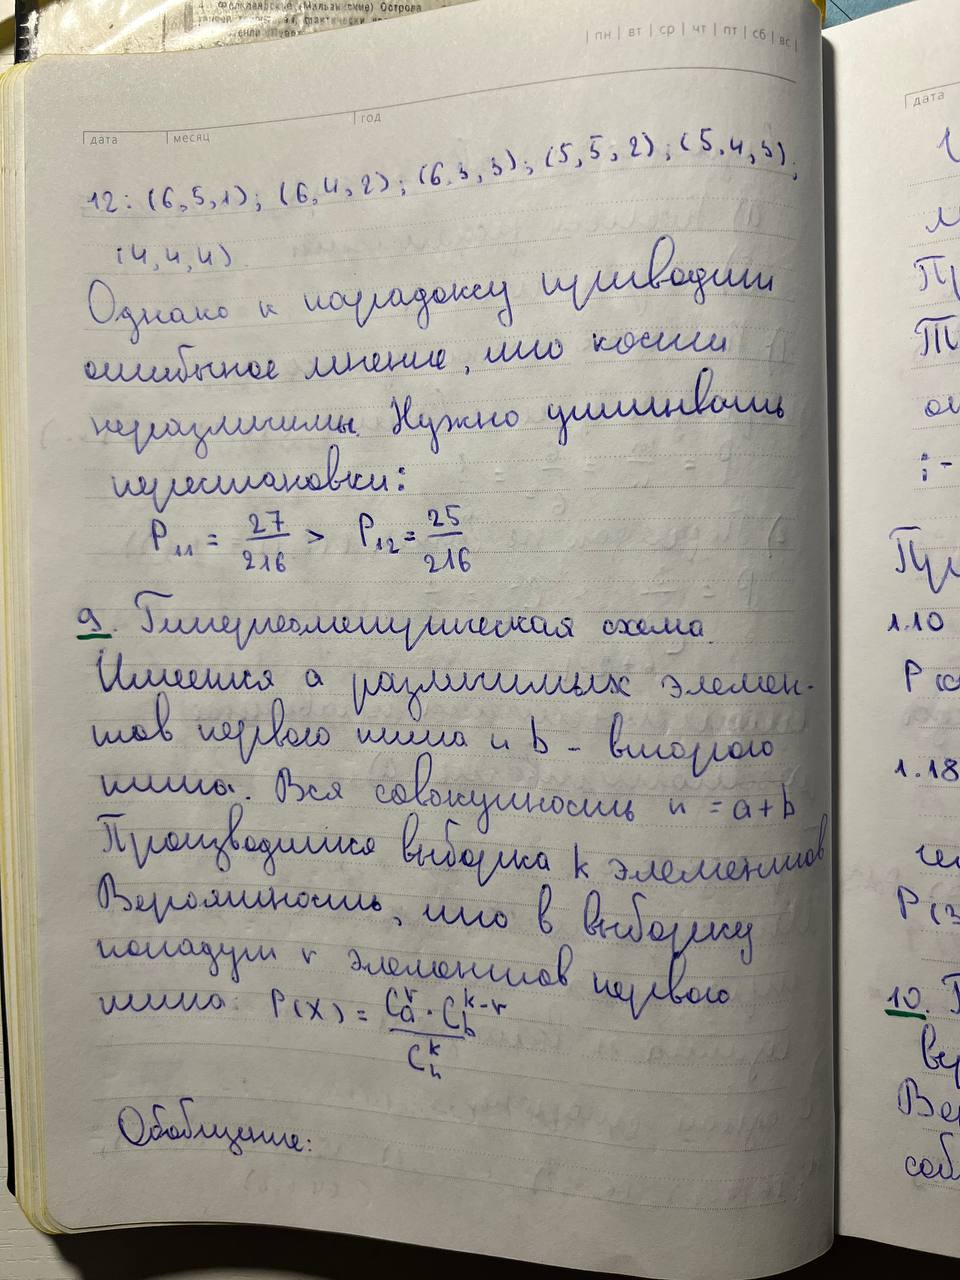 4. Фолклендские (Мальвинские) Острова
пн вт ср чт пт сб вс
дата месяц год
12: (6,5,1); (6,4,2); (6,3,3); (5,5,2); (5,4,3);
(4,4,4)
Однако к парадоксу приводит
ошибочное мнение, что кости
неразличимы. Нужно учитывать
перестановки:
P₁₁ = 27/216 > P₁₂ = 25/216
9. Гипергеометрическая схема.
Имеется a различимых элемен-
тов первого типа и b - второго
типа. Вся совокупность n = a+b
Производится выборка k элементов
Вероятность, что в выборку
попадут r элементов первого
типа: P(X) = (C_a^r · C_b^{k-r}) / C_n^k
Обобщение:
дата
1.10
P(
1.18
P(3
10.